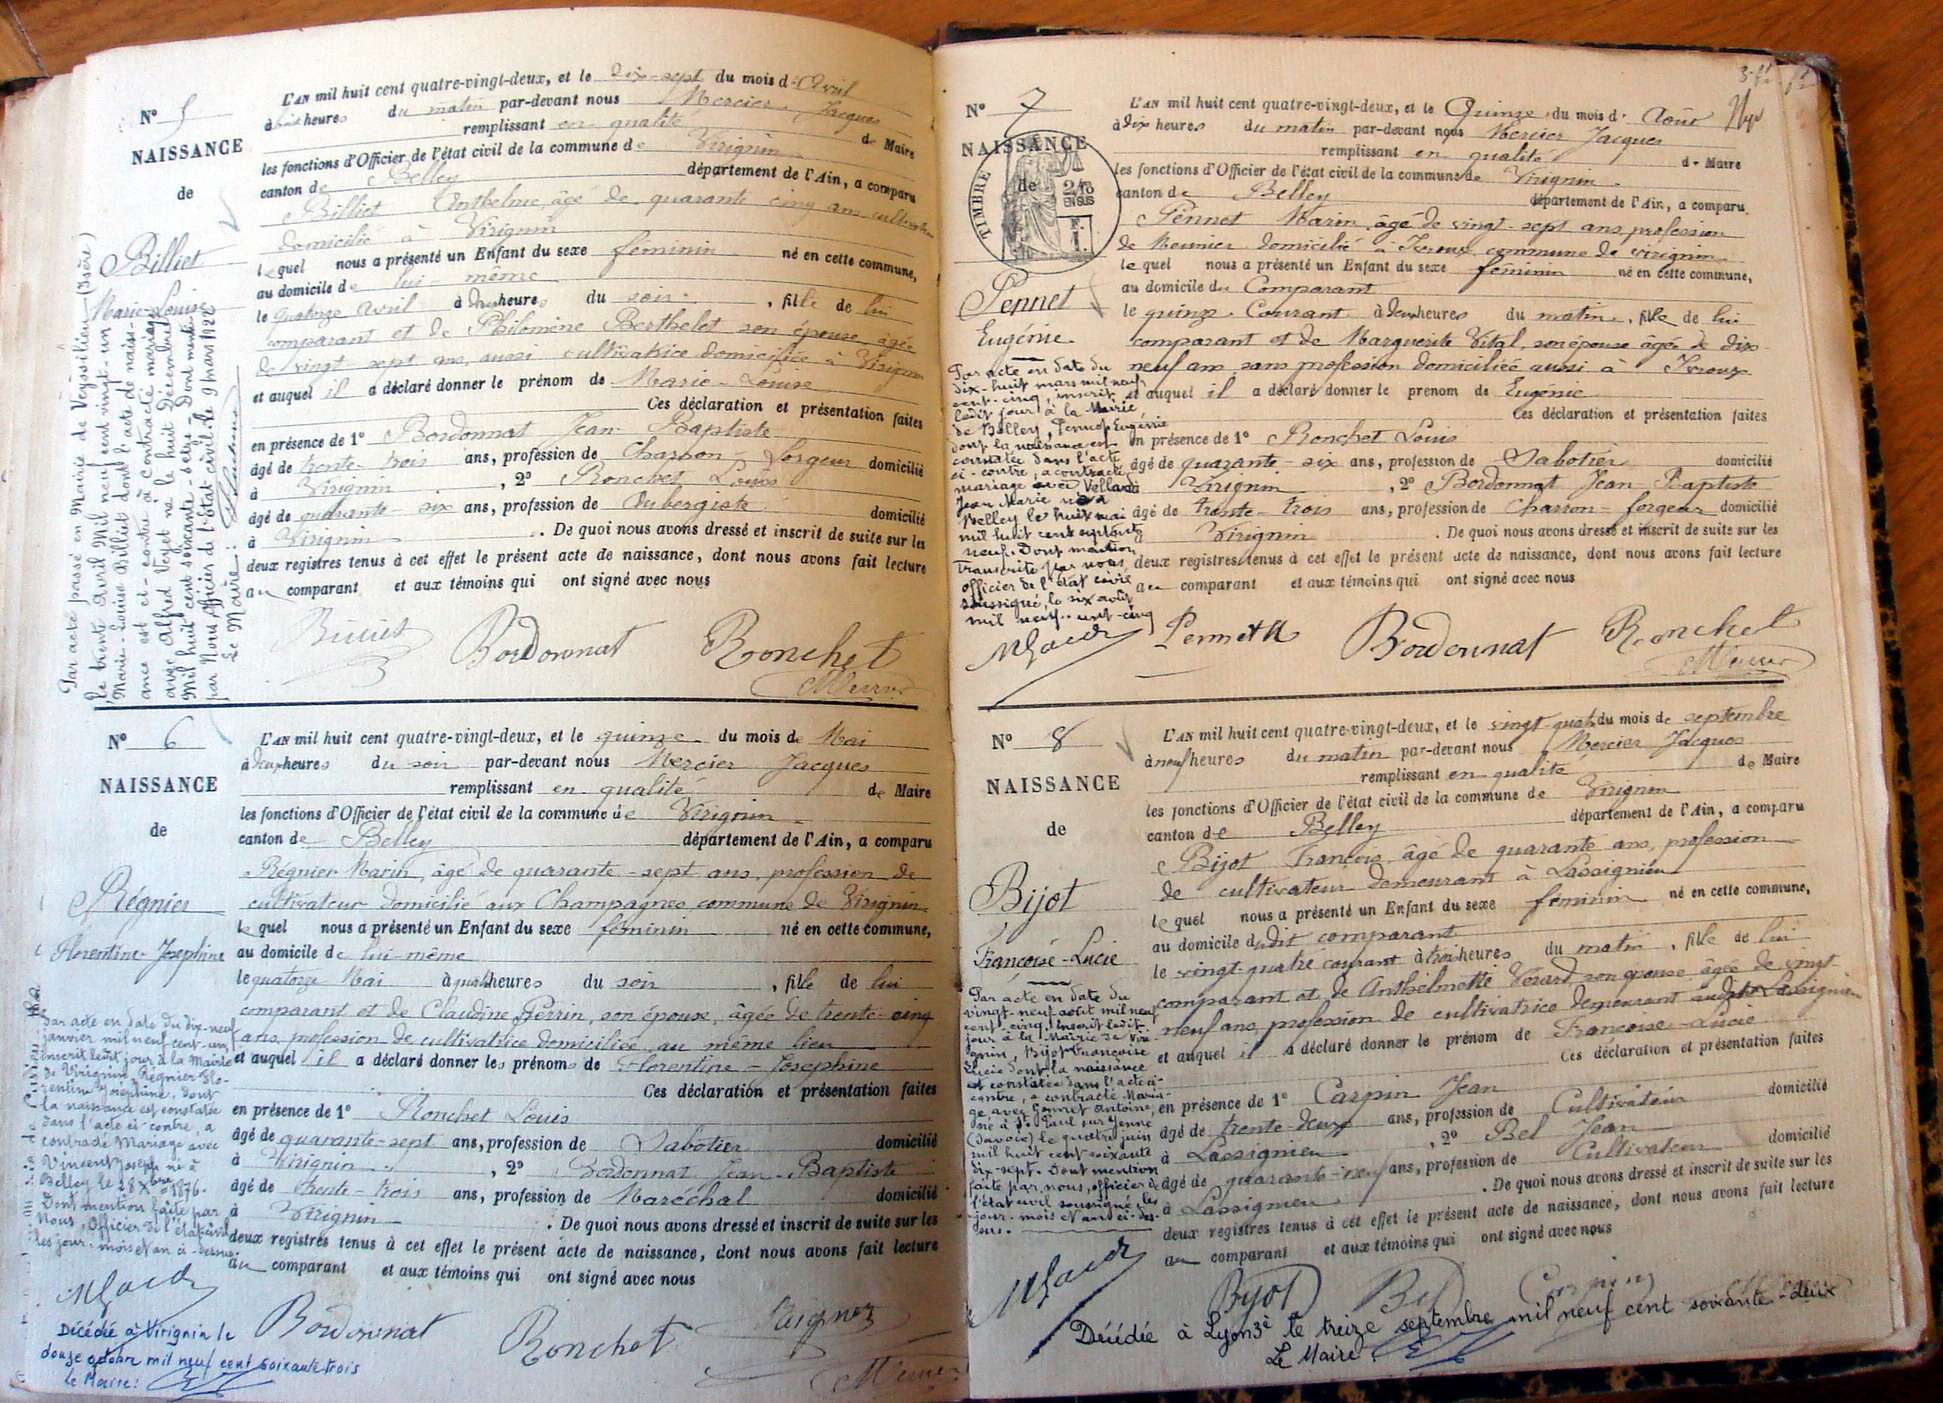 N° 5
NAISSANCE
de
Billiet
Marie-Louise
L'AN mil huit cent quatre-vingt-deux, et le Dix-sept du mois d'Avril
à huit heures du matin par-devant nous Mercier Jacques
remplissant en qualité de Maire
les fonctions d'Officier de l'état civil de la commune de Virignin
canton de Belley département de l'Ain, a comparu
Billiet Anthelme, âgé de quarante cinq ans cultivateur
domicilié à Virignin
lequel nous a présenté un Enfant du sexe féminin né en cette commune,
au domicile de lui-même
le quatorze avril à deux heures du soir, fille de lui
comparant et de Philomène Berthelet son épouse, âgée
de vingt sept ans, aussi cultivatrice domiciliée à Virignin
et auquel il a déclaré donner le prénom de Marie-Louise
Ces déclaration et présentation faites
en présence de 1° Bordonnat Jean-Baptiste
âgé de trente-trois ans, profession de Charron-forgeur domicilié
à Virignin, 2° Ronchet Louis
âgé de quarante-six ans, profession de Aubergiste domicilié
à Virignin. De quoi nous avons dressé et inscrit de suite sur les
deux registres tenus à cet effet le présent acte de naissance, dont nous avons fait lecture
au comparant et aux témoins qui ont signé avec nous
Par acte passé en Mairie de Veyssilieu (Isère)
le trente Avril Mil neuf cent vingt-un
Marie-Louise Billiet dont l'acte de nais-
sance est ci-contre à contracté mariage
avec Alfred Veyet né le huit Décembre
Mil huit cent soixante-seize. Dont mention
par Nous Officier de l'état-civil. le 9 mars 1922
Le Maire:
Billiet
Bordonnat
Ronchet
Mercier
N° 6
NAISSANCE
de
Régnier
Florentine-Josephine
L'AN mil huit cent quatre-vingt-deux, et le quinze du mois de Mai
à deux heures du soir par-devant nous Mercier Jacques
remplissant en qualité de Maire
les fonctions d'Officier de l'état civil de la commune de Virignin
canton de Belley département de l'Ain, a comparu
Régnier Marin, âgé de quarante-sept ans, profession de
cultivateur domicilié aux Champagnes commune de Virignin
lequel nous a présenté un Enfant du sexe féminin né en cette commune,
au domicile de lui-même
le quatorze Mai à quatre heures du soir, fille de lui
comparant et de Claudine Perrin, son épouse, âgée de trente-cinq
ans, profession de cultivatrice domiciliée au même lieu
et auquel il a déclaré donner les prénoms de Florentine-Josephine
Ces déclaration et présentation faites
en présence de 1° Ronchet Louis
âgé de quarante-sept ans, profession de Sabotier domicilié
à Virignin, 2° Bordonnat Jean-Baptiste
âgé de trente-trois ans, profession de Maréchal domicilié
à Virignin. De quoi nous avons dressé et inscrit de suite sur les
deux registres tenus à cet effet le présent acte de naissance, dont nous avons fait lecture
au comparant et aux témoins qui ont signé avec nous
Par acte en date du dix-neuf
janvier mil neuf cent-un,
inscrit ledit jour à la Mairie
de Virignin, Régnier Flo-
rentine Joséphine, dont
la naissance est constatée
dans l'acte ci-contre, a
contracté Mariage avec
Vincent Joseph né à
Belley le 28 Xbre 1876.
Dont mention faite par
Nous, Officier de l'état civil
les jour, mois et an ci-dessus
Bordonnat
Ronchet
Régnier
Mercier
Décédée à Virignin le
douze octobre mil neuf cent soixante trois
Le Maire:
N° 7
NAISSANCE
de
TIMBRE
2/10
EN SUS
Pennet
Eugénie
L'AN mil huit cent quatre-vingt-deux, et le Quinze du mois d'Août
à dix heures du matin par-devant nous Mercier Jacques
remplissant en qualité de Maire
les fonctions d'Officier de l'état civil de la commune de Virignin
canton de Belley département de l'Ain, a comparu
Pennet Marin âgé de vingt-sept ans, profession
de Meunier domicilié à Ivroux commune de Virignin
lequel nous a présenté un Enfant du sexe féminin né en cette commune,
au domicile du Comparant
le quinze Courant à deux heures du matin, fille de lui
comparant et de Marguerite Vital, son épouse âgée de dix-
neuf ans sans profession domiciliée aussi à Ivroux
et auquel il a déclaré donner le prénom de Eugénie
Ces déclaration et présentation faites
en présence de 1° Ronchet Louis
âgé de quarante-six ans, profession de Sabotier domicilié
à Virignin, 2° Bordonnat Jean Baptiste
âgé de trente-trois ans, profession de Charron-forgeur domicilié
à Virignin. De quoi nous avons dressé et inscrit de suite sur les
deux registres tenus à cet effet le présent acte de naissance, dont nous avons fait lecture
au comparant et aux témoins qui ont signé avec nous
Par acte en date du
dix-huit mars mil neuf
cent-cinq, inscrit
ledit jour à la Mairie
de Belley, Pennet Eugénie
dont la naissance est
constatée dans l'acte
ci-contre, a contracté
mariage avec Velland
Jean Marie né à
Belley le huit mai
mil huit cent septante
neuf. Dont mention
transcrite par nous
officier de l'état civil
soussigné, le six août
mil neuf-cent-cinq
Pennet M
Bordonnat
Ronchet
Mercier
N° 8
NAISSANCE
de
Bijot
Françoise-Lucie
L'AN mil huit cent quatre-vingt-deux, et le vingt-quatre du mois de septembre
à neuf heures du matin par-devant nous Mercier Jacques
remplissant en qualité de Maire
les fonctions d'Officier de l'état civil de la commune de Virignin
canton de Belley département de l'Ain, a comparu
Bijot François âgé de quarante ans, profession
de cultivateur demeurant à Lassignieu
lequel nous a présenté un Enfant du sexe féminin né en cette commune,
au domicile dudit comparant
le vingt-quatre courant à trois heures du matin, fille de lui
comparant et de Anthelmette Vérard son épouse âgée de vingt
neuf ans, profession de cultivatrice demeurant audit Lassignieu
et auquel il a déclaré donner le prénom de Françoise-Lucie
Ces déclaration et présentation faites
en présence de 1° Carpin Jean
âgé de trente-deux ans, profession de Cultivateur domicilié
à Lassignieu, 2° Bel Jean
âgé de quarante-neuf ans, profession de Cultivateur domicilié
à Lassignieu. De quoi nous avons dressé et inscrit de suite sur les
deux registres tenus à cet effet le présent acte de naissance, dont nous avons fait lecture
au comparant et aux témoins qui ont signé avec nous
Par acte en date du
vingt-neuf août mil neuf
cent-cinq, inscrit ledit
jour à la Mairie de Viri-
gnin, Bijot Françoise
Lucie dont la naissance
est constatée dans l'acte ci-
contre, a contracté Maria-
ge avec Gonnet Antoine,
né à St Paul sur Yenne
(Savoie) le quatre juin
mil huit cent soixante
dix-sept. Dont mention
faite par nous, officier de
l'état civil soussigné, les
jour, mois et an ci-des-
sus.
Bijot
Bel
Carpin
Décédée à Lyon 3è le treize septembre mil neuf cent soixante-deux
Le Maire: